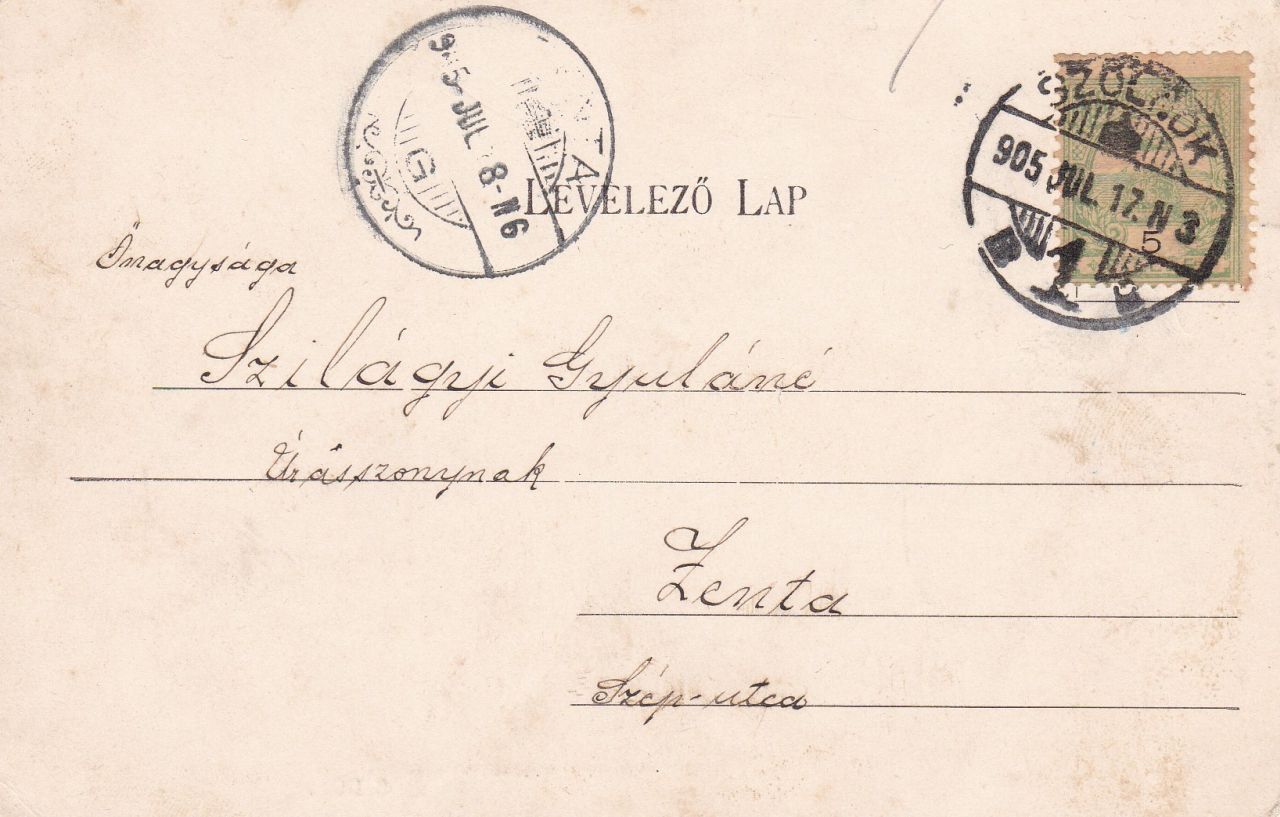 SZOLNOK
905 JUL. 17. N 3
5
1
905 JUL 18-N6
G
LEVELEZŐ LAP
Őnagysága
Szilágyi Gyuláné
Úrásszonynak
Zenta
Szép-utca